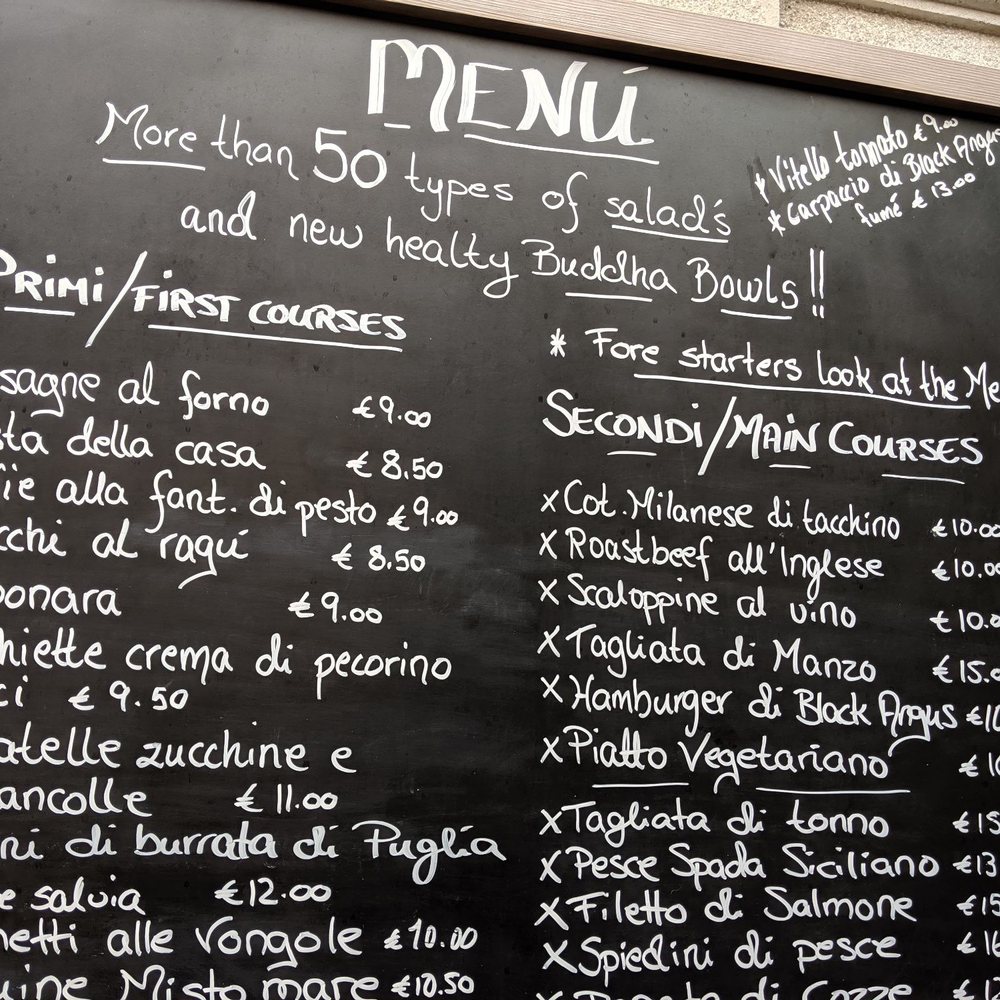 MENÚ
More than 50 types of salad's
and new healty Buddha Bowls!!
* Vitello tonnato €9.00
* Carpaccio di Black Angus
fumé €13.00
PRIMI/FIRST COURSES
sagne al forno €9.00
sta della casa €8.50
fie alla fant. di pesto €9.00
cchi al ragú €8.50
bonara €9.00
hiette crema di pecorino
ci €9.50
atelle zucchine e
ancolle €11.00
ni di burrata di Puglia
e salvia €12.00
hetti alle vongole €10.00
uine Misto mare €10.50
* Fore starters look at the Me
SECONDI/MAIN COURSES
x Cot. Milanese di tacchino €10.00
x Roastbeef all'Inglese €10.00
x Scaloppine al vino €10.0
x Tagliata di Manzo €15.0
x Hamburger di Black Angus
x Piatto Vegetariano
x Tagliata di tonno
x Pesce Spada Siciliano €13
x Filetto di Salmone €15
x Spiedini di pesce